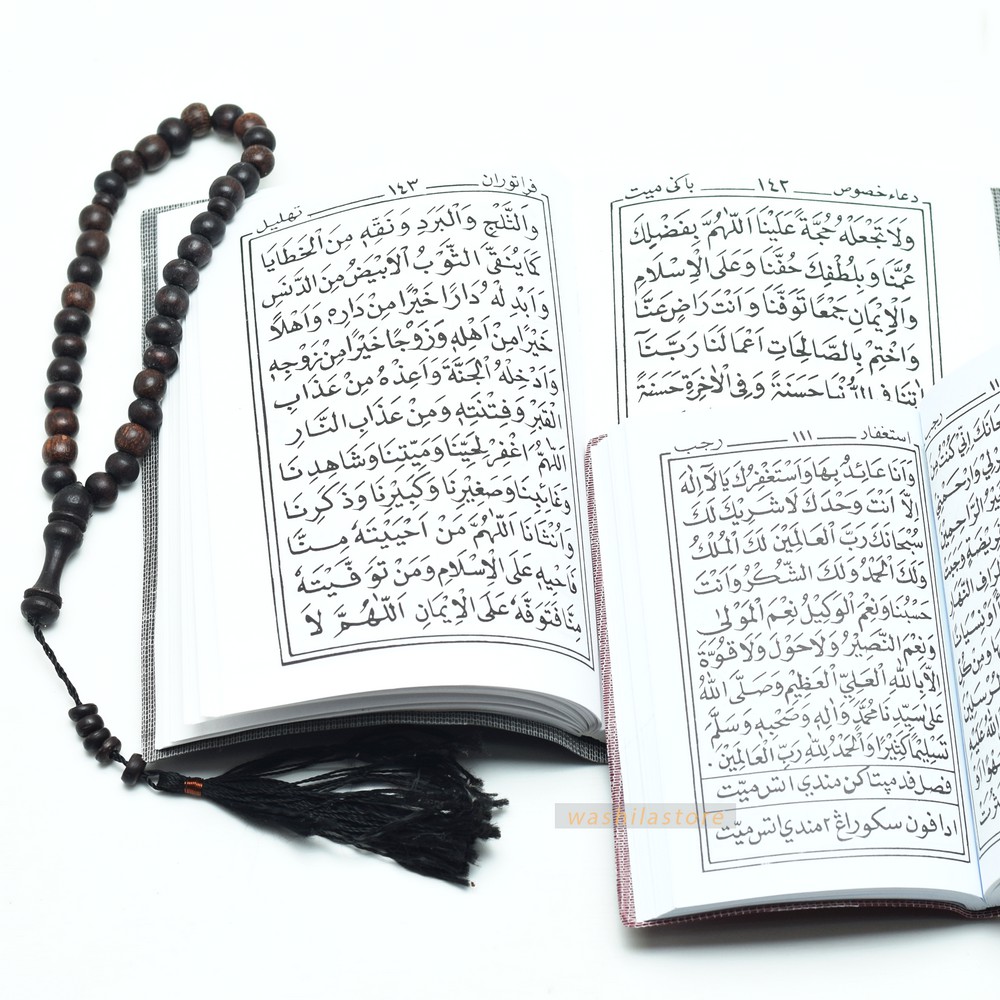 دعاء خصوص ١٤٢ باݢي ميت
وَلَا تَجْعَلْهُ حُجَّةً عَلَيْنَا اَللّٰهُمَّ بِفَضْلِكَ
عُمَّنَا وَبِلُطْفِكَ حُفَّنَا وَعَلَى الْاِسْلَامِ
وَالْاِيْمَانِ جَمْعًا تَوَفَّنَا وَاَنْتَ رَاضٍ عَنَّا
وَاخْتِمْ بِالصَّالِحَاتِ اَعْمَالَنَا رَبَّنَا
اٰتِنَا فِى الدُّنْيَا حَسَنَةً وَفِى الْاٰخِرَةِ حَسَنَةً
فراتوران ١٤٣ تهليل
وَالثَّلْجِ وَالْبَرَدِ وَنَقِّهِ مِنَ الْخَطَايَا
كَمَا يُنَقَّى الثَّوْبُ الْاَبْيَضُ مِنَ الدَّنَسِ
وَاَبْدِلْهُ دَارًا خَيْرًا مِنْ دَارِهِ وَاَهْلًا
خَيْرًا مِنْ اَهْلِهِ وَزَوْجًا خَيْرًا مِنْ زَوْجِهِ
وَاَدْخِلْهُ الْجَنَّةَ وَاَعِذْهُ مِنْ عَذَابِ
الْقَبْرِ وَفِتْنَتِهِ وَمِنْ عَذَابِ النَّارِ
اَللّٰهُمَّ اغْفِرْ لِحَيِّنَا وَمَيِّتِنَا وَشَاهِدِنَا
وَغَائِبِنَا وَصَغِيْرِنَا وَكَبِيْرِنَا وَذَكَرِنَا
وَاُنْثَانَا اَللّٰهُمَّ مَنْ اَحْيَيْتَهُ مِنَّا
فَاَحْيِهِ عَلَى الْاِسْلَامِ وَمَنْ تَوَفَّيْتَهُ
مِنَّا فَتَوَفَّهُ عَلَى الْاِيْمَانِ اَللّٰهُمَّ لَا
استغفار ١١١ رجب
وَاَنَا عَائِدٌ بِهَا وَاَسْتَغْفِرُكَ يَا لَآ اِلٰهَ
اِلَّا اَنْتَ وَحْدَكَ لَا شَرِيْكَ لَكَ
سُبْحَانَكَ رَبَّ الْعَالَمِيْنَ لَكَ الْمُلْكُ
وَلَكَ الْحَمْدُ وَلَكَ الشُّكْرُ وَاَنْتَ
حَسْبُنَا وَنِعْمَ الْوَكِيْلُ نِعْمَ الْمَوْلٰى
وَنِعْمَ النَّصِيْرُ وَلَا حَوْلَ وَلَا قُوَّةَ
اِلَّا بِاللّٰهِ الْعَلِيِّ الْعَظِيْمِ وَصَلَّى اللّٰهُ
عَلٰى سَيِّدِنَا مُحَمَّدٍ وَاٰلِهِ وَصَحْبِهِ وَسَلَّمَ
تَسْلِيْمًا كَثِيْرًا وَالْحَمْدُ لِلّٰهِ رَبِّ الْعَالَمِيْنَ.
فصل فد مپتاكن مندي اتس ميّت
ادافون سكوراڠ٢ مندي اتس ميّت
washilastore